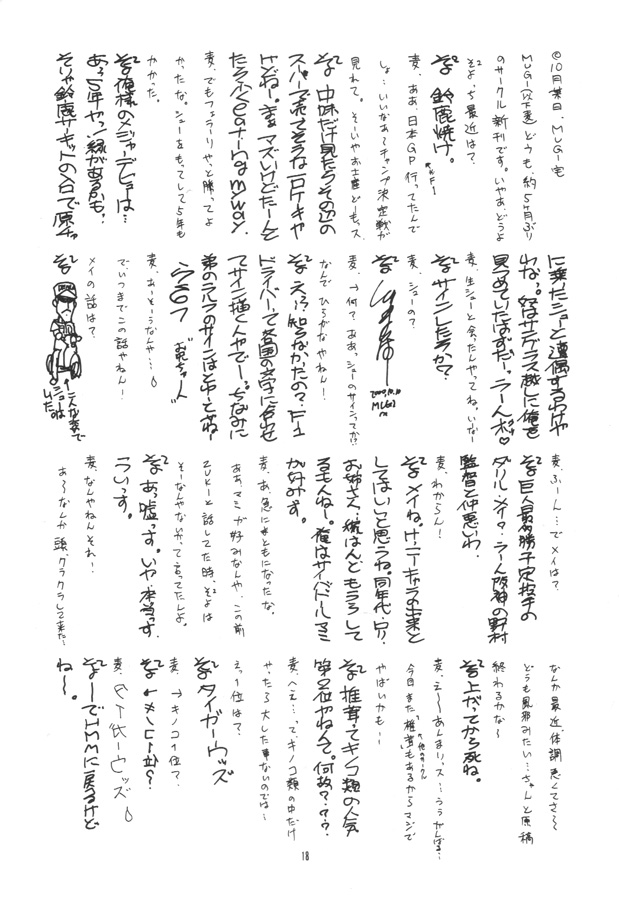 ◎10月某日、MUGI宅
MUGI(以下麦) どうも、約5ヶ月ぶり
のサークル新刊です。いやあ、どうよ
そよ²っち最近は？
そよ² 鈴鹿焼け。
麦、ああ、日本GP行ってたんで
※F1
しょ…いいなあチャンプ決定戦が
見れて。そいやお土産どーも、ス
そよ² 中味だけ見たらその辺の
スーパーで売ってそうな一口ケーキや
けどねー。まぁ、マズいけどたーんと
麦、でもフェラーリやっと勝ってよ
かったな。シューをもってして5年も
かかった。
そよ² 俺様のメジャーデビューは…
あっ5年やっ！縁があるかも。
そりゃ鈴鹿サーキットの入口で原チャ
に乗ったシューと遭遇するわけや
わな。奴はサングラス越しに俺を
見つめていたはずだ。うーん♡
麦、生シューと会ったんやってね。いいなー
そよ² サインしたろか？
麦、シューの？
そよ²
2000.10.10
MUGI
麦、→何？ああっ、シューのサインってか!?
なんでひらがなやねん！
そよ² え…？知らなかったの？F1
ドライバーって各国の文字に合わせ
てサイン描く人やでー。ちなみに
弟のラルフのサインはこやっとねー
らるつ お兄ちゃん
麦、あーそーうなんや…
で、いつまでこの話やねん！
メイの話は？
そよ²
麦、ふーん…でメイは？
そよ² 巨人最多勝予定投手の
ダリル・メイ、うーん阪神の野村
監督と仲悪いわ。
麦、わからん！
そよ² メイね。けーニーキャラの出来と
してはいいと思うね。同年代・ロリ・
お姉さん…俺はんどもうろして
るもんねー。俺はサイバドールマミ
が好みっす。
麦、あ、急にまともになったな。
ああ、マミが好みなんや、この前
ZUKEと話してた時、そよは
そーなんやないやって言ってたんよ。
そよ² あっ嘘っす。いや、本当っす
ういっす。
麦、なんやねんそれ！
あ〜なんか頭、クラクラして来た…
なんか最近、体調悪くてさ〜
どうも風邪みたい…ちゃんと原稿
終わるかな〜
そよ² 上がってから死ね。
麦、え〜あんまりっス…うぅがんばる…
今日また「椎茸」もあるからマジで
やばいかも…
そよ² 椎茸ってキノコ類の人気
第2位やねんて。何故？？？
麦、へえ…って、キノコ類の中だけ
やったら大した事ないのでは〜
えっ1位は？
そよ² タイガーウッズ
麦、→キノコ1位？
麦、
そよ² ーでHMMに戻るけど
ね〜。
18